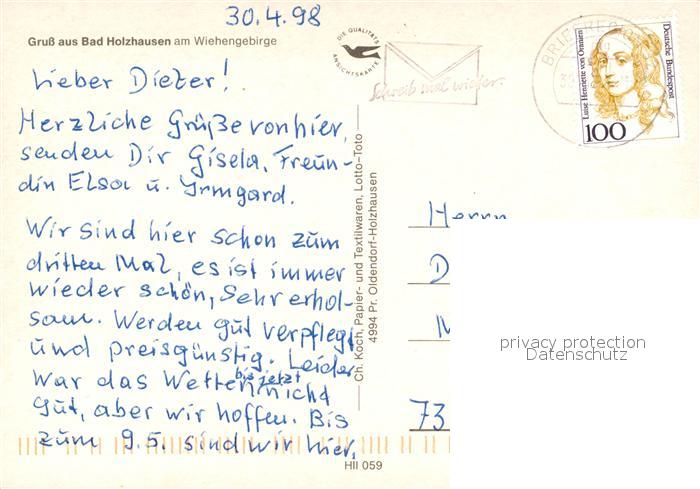 30.4.98
Gruß aus Bad Holzhausen am Wiehengebirge
Lieber Dieter!
Herzliche Grüße von hier,
senden Dir Gisela, Freun-
din Elsa u. Irmgard.
Wir sind hier schon zum
dritten Mal, es ist immer
wieder schön, sehr erhol-
sam. Werden gut verpflegt
und preisgünstig. Leider
war das Wetter bis jetzt nicht
gut, aber wir hoffen. Bis
zum 9.5. sind wir hier.
DIE QUALITÄTS
ANSICHTSKARTE
Schreib mal wieder.
BRIEFREGION
Luise Henriette von Oranien
100
Deutsche Bundespost
Ch. Koch, Papier- und Textilwaren, Lotto-Toto
4994 Pr. Oldendorf-Holzhausen
Herrn
D
73
privacy protection
Datenschutz
HII 059